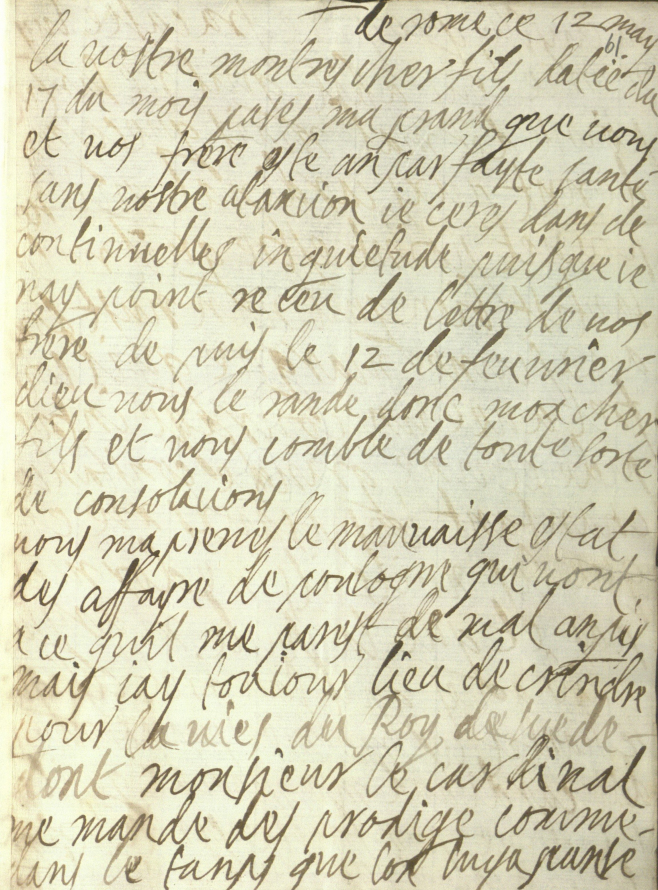 de rome ce 12 may
61
la vostre mon tres cher fils datée du
17 du mois pases ma prand que vous
et vos frere este an parfayte santé
sans vostre atansion ie ceres dans de
continuelles inquietude puisque ie
nay point receu de lettre de vos
frere de puis le 12 de feuurier
dieu vous le rande donc mon cher
fils et vous comble de toute sorte
de consolacions
vous ma prenes le mauuaisse estat
des affayre de poulogne qui vont
a ce quil me parest de mal an pis
mais iay touiour lieu de crindre
pour la vies du Roy de suede
dont monsieur le cardinal
me mande des prodige comme
dans le tanps que lon